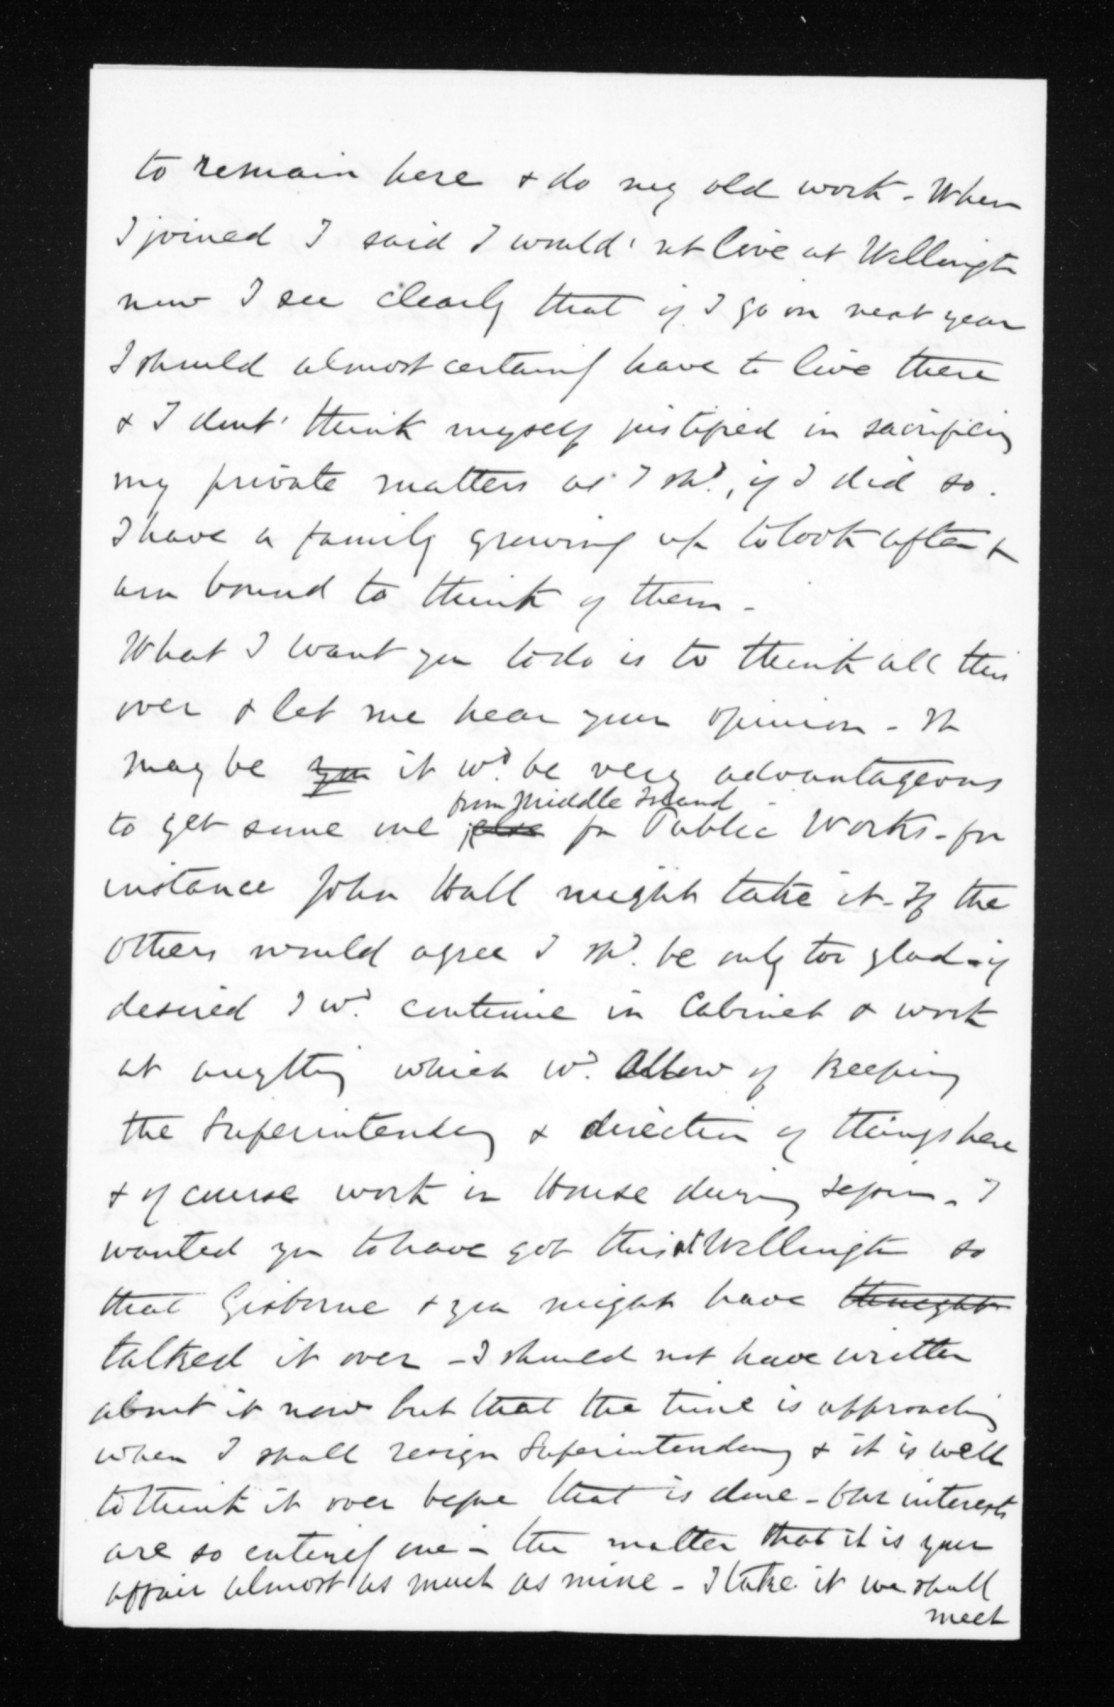 to remain here & do my old work - When
I joined I said I would' not live at Wellingtn
now I see clearly that if I go on next year
I should almost certainly have to live there
& I dont' think myself justified in sacrificing
my private matters as I shd., if I did so.
I have a family growing up to look after &
am bound to think of them -
What I want you to do is to think all this
over & let me hear your opinion - It
may be you it wd. be very advantageous
from Middle Island
to get some one else for Public Works - for
instance John Hall might take it - If the
others would agree I shd. be only too glad - if
desired I wd. continue in Cabinet & work
at anything which wd. allow of keeping
the Superintendency & direction of things here
& of course work in House during session - I
wanted you to have got this at Wellington so
that Gisborne & you might have thought
talked it over - I should not have written
about it now but that the time is approaching
when I shall resign Superintendency & it is well
to think it over before that is done - Our interests
are so entirely one - the matter that it is your
affair almost as much as mine - I take it we shall
meet